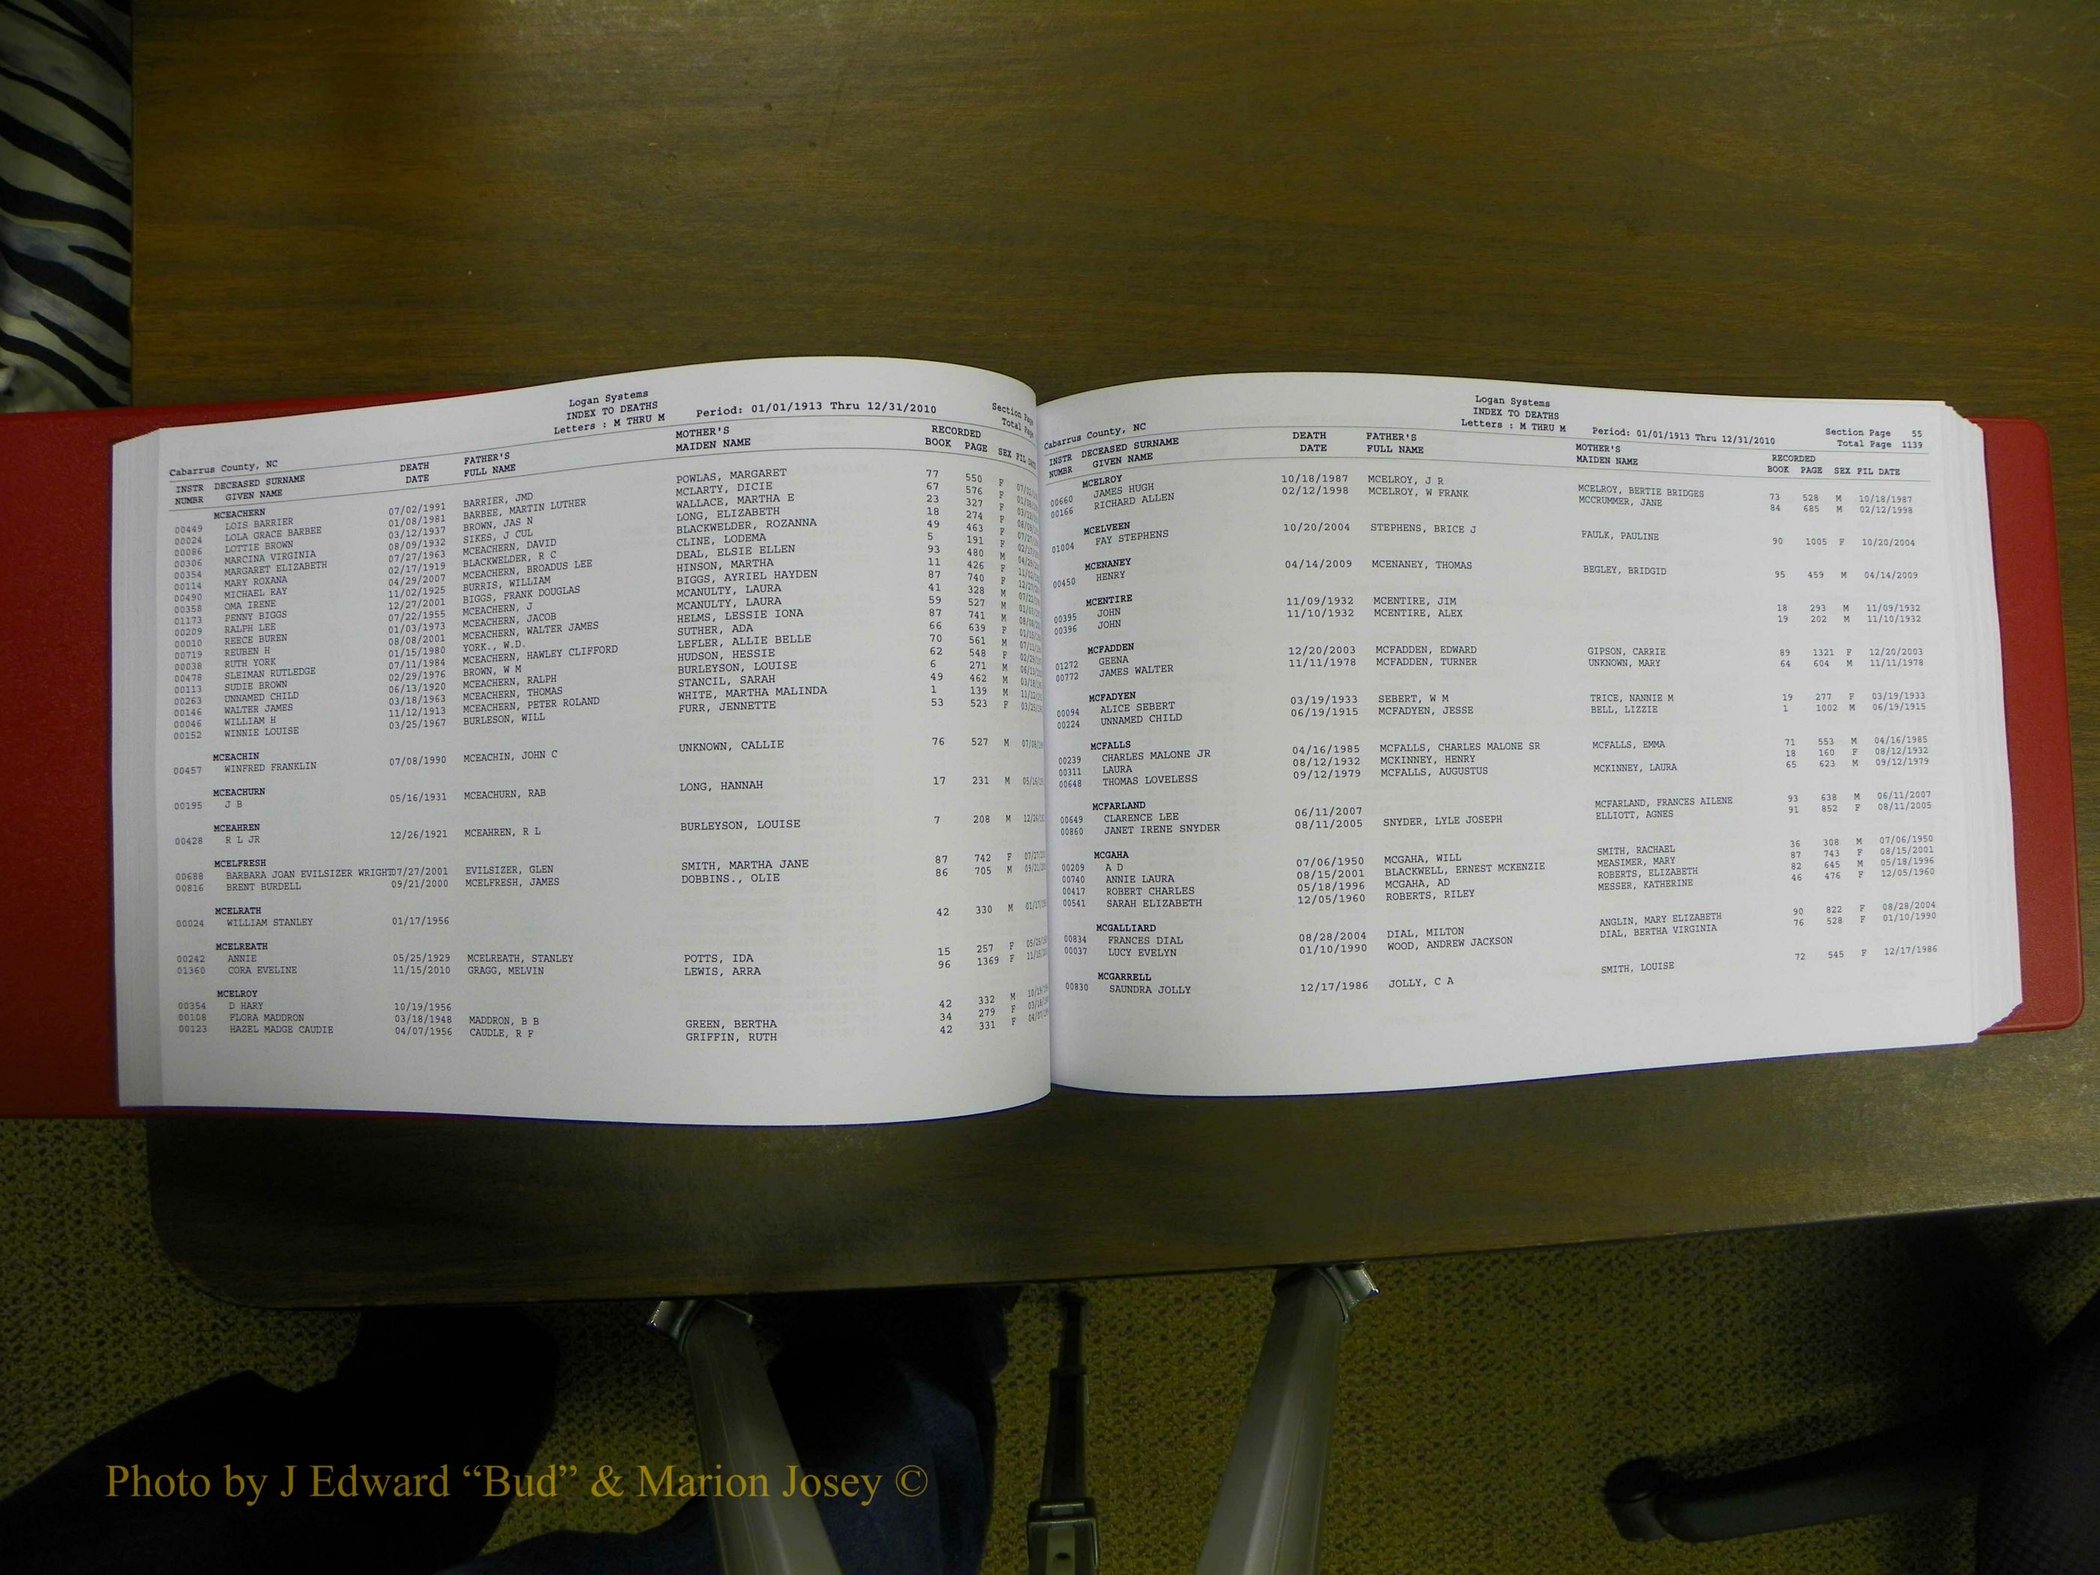 Logan Systems
INDEX TO DEATHS
Letters : M THRU M Period: 01/01/1913 Thru 12/31/2010 Section Page
Cabarrus County, NC Total Page
INSTR DECEASED SURNAME DEATH FATHER'S MOTHER'S RECORDED
NUMBR GIVEN NAME DATE FULL NAME MAIDEN NAME BOOK PAGE SEX FIL DATE
MCEACHERN
00449 LOIS BARRIER 07/02/1991 BARRIER, JMD POWLAS, MARGARET 77 550 F
00024 LOLA GRACE BARBEE 01/08/1981 BARBEE, MARTIN LUTHER MCLARTY, DICIE 67 576 F
00086 LOTTIE BROWN 03/12/1937 BROWN, JAS N WALLACE, MARTHA E 23 327 F
00306 MARCINA VIRGINIA 08/09/1932 SIKES, J CUL LONG, ELIZABETH 18 274 F
00354 MARGARET ELIZABETH 07/27/1963 MCEACHERN, DAVID BLACKWELDER, ROZANNA 49 463 F
00114 MARY ROXANA 02/17/1919 BLACKWELDER, R C CLINE, LODEMA 5 191 F
00490 MICHAEL RAY 04/29/2007 MCEACHERN, BROADUS LEE DEAL, ELSIE ELLEN 93 480 M
00358 OMA IRENE 11/02/1925 BURRIS, WILLIAM HINSON, MARTHA 11 426 F
01173 PENNY BIGGS 12/27/2001 BIGGS, FRANK DOUGLAS BIGGS, AYRIEL HAYDEN 87 740 F
00209 RALPH LEE 07/22/1955 MCEACHERN, J MCANULTY, LAURA 41 328 M
00010 REECE BUREN 01/03/1973 MCEACHERN, JACOB MCANULTY, LAURA 59 527 M
00719 REUBEN H 08/08/2001 MCEACHERN, WALTER JAMES HELMS, LESSIE IONA 87 741 M
00038 RUTH YORK 01/15/1980 YORK., W.D. SUTHER, ADA 66 639 F
00478 SLEIMAN RUTLEDGE 07/11/1984 MCEACHERN, HAWLEY CLIFFORD LEFLER, ALLIE BELLE 70 561 M
00113 SUDIE BROWN 02/29/1976 BROWN, W M HUDSON, HESSIE 62 548 F
00263 UNNAMED CHILD 06/13/1920 MCEACHERN, RALPH BURLEYSON, LOUISE 6 271 M
00146 WALTER JAMES 03/18/1963 MCEACHERN, THOMAS STANCIL, SARAH 49 462 M
00046 WILLIAM H 11/12/1913 MCEACHERN, PETER ROLAND WHITE, MARTHA MALINDA 1 139 M
00152 WINNIE LOUISE 03/25/1967 BURLESON, WILL FURR, JENNETTE 53 523 F
MCEACHIN
00457 WINFRED FRANKLIN 07/08/1990 MCEACHIN, JOHN C UNKNOWN, CALLIE 76 527 M
MCEACHURN
00195 J B 05/16/1931 MCEACHURN, RAB LONG, HANNAH 17 231 M
MCEAHREN
00428 R L JR 12/26/1921 MCEAHREN, R L BURLEYSON, LOUISE 7 208 M
MCELFRESH
00688 BARBARA JOAN EVILSIZER WRIGHT07/27/2001 EVILSIZER, GLEN SMITH, MARTHA JANE 87 742 F
00816 BRENT BURDELL 09/21/2000 MCELFRESH, JAMES DOBBINS., OLIE 86 705 M
MCELRATH
00024 WILLIAM STANLEY 01/17/1956 42 330 M
MCELREATH
00242 ANNIE 05/25/1929 MCELREATH, STANLEY POTTS, IDA 15 257 F
01360 CORA EVELINE 11/15/2010 GRAGG, MELVIN LEWIS, ARRA 96 1369 F
MCELROY
00354 D HARY 10/19/1956 42 332 M
00108 FLORA MADDRON 03/18/1948 MADDRON, B B GREEN, BERTHA 34 279 F
00123 HAZEL MADGE CAUDIE 04/07/1956 CAUDLE, R F GRIFFIN, RUTH 42 331 F
Logan Systems
INDEX TO DEATHS
Letters : M THRU M Period: 01/01/1913 Thru 12/31/2010 Section Page 55
Cabarrus County, NC Total Page 1139
INSTR DECEASED SURNAME DEATH FATHER'S MOTHER'S RECORDED
NUMBR GIVEN NAME DATE FULL NAME MAIDEN NAME BOOK PAGE SEX FIL DATE
MCELROY
00660 JAMES HUGH 10/18/1987 MCELROY, J R MCELROY, BERTIE BRIDGES 73 528 M 10/18/1987
00166 RICHARD ALLEN 02/12/1998 MCELROY, W FRANK MCCRUMMER, JANE 84 685 M 02/12/1998
MCELVEEN
01004 FAY STEPHENS 10/20/2004 STEPHENS, BRICE J FAULK, PAULINE 90 1005 F 10/20/2004
MCENANEY
00450 HENRY 04/14/2009 MCENANEY, THOMAS BEGLEY, BRIDGID 95 459 M 04/14/2009
MCENTIRE
00395 JOHN 11/09/1932 MCENTIRE, JIM 18 293 M 11/09/1932
00396 JOHN 11/10/1932 MCENTIRE, ALEX 19 202 M 11/10/1932
MCFADDEN
01272 GEENA 12/20/2003 MCFADDEN, EDWARD GIPSON, CARRIE 89 1321 F 12/20/2003
00772 JAMES WALTER 11/11/1978 MCFADDEN, TURNER UNKNOWN, MARY 64 604 M 11/11/1978
MCFADYEN
00094 ALICE SEBERT 03/19/1933 SEBERT, W M TRICE, NANNIE M 19 277 F 03/19/1933
00224 UNNAMED CHILD 06/19/1915 MCFADYEN, JESSE BELL, LIZZIE 1 1002 M 06/19/1915
MCFALLS
00239 CHARLES MALONE JR 04/16/1985 MCFALLS, CHARLES MALONE SR MCFALLS, EMMA 71 553 M 04/16/1985
00311 LAURA 08/12/1932 MCKINNEY, HENRY 18 160 F 08/12/1932
00648 THOMAS LOVELESS 09/12/1979 MCFALLS, AUGUSTUS MCKINNEY, LAURA 65 623 M 09/12/1979
MCFARLAND
00649 CLARENCE LEE 06/11/2007 MCFARLAND, FRANCES AILENE 93 638 M 06/11/2007
00860 JANET IRENE SNYDER 08/11/2005 SNYDER, LYLE JOSEPH ELLIOTT, AGNES 91 852 F 08/11/2005
MCGAHA
00209 A D 07/06/1950 MCGAHA, WILL SMITH, RACHAEL 36 308 M 07/06/1950
00740 ANNIE LAURA 08/15/2001 BLACKWELL, ERNEST MCKENZIE MEASIMER, MARY 87 743 F 08/15/2001
00417 ROBERT CHARLES 05/18/1996 MCGAHA, AD ROBERTS, ELIZABETH 82 645 M 05/18/1996
00541 SARAH ELIZABETH 12/05/1960 ROBERTS, RILEY MESSER, KATHERINE 46 476 F 12/05/1960
MCGALLIARD
00834 FRANCES DIAL 08/28/2004 DIAL, MILTON ANGLIN, MARY ELIZABETH 90 822 F 08/28/2004
00037 LUCY EVELYN 01/10/1990 WOOD, ANDREW JACKSON DIAL, BERTHA VIRGINIA 76 528 F 01/10/1990
MCGARRELL
00830 SAUNDRA JOLLY 12/17/1986 JOLLY, C A SMITH, LOUISE 72 545 F 12/17/1986
Photo by J Edward “Bud” & Marion Josey ©